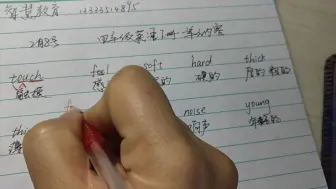 智慧教育 13333514895
2月8号 四年级英语下册 单元内容
touch feel soft hard thick
触摸 感 的 硬的 厚的 粗的
thi noise young
薄 响声 年轻的